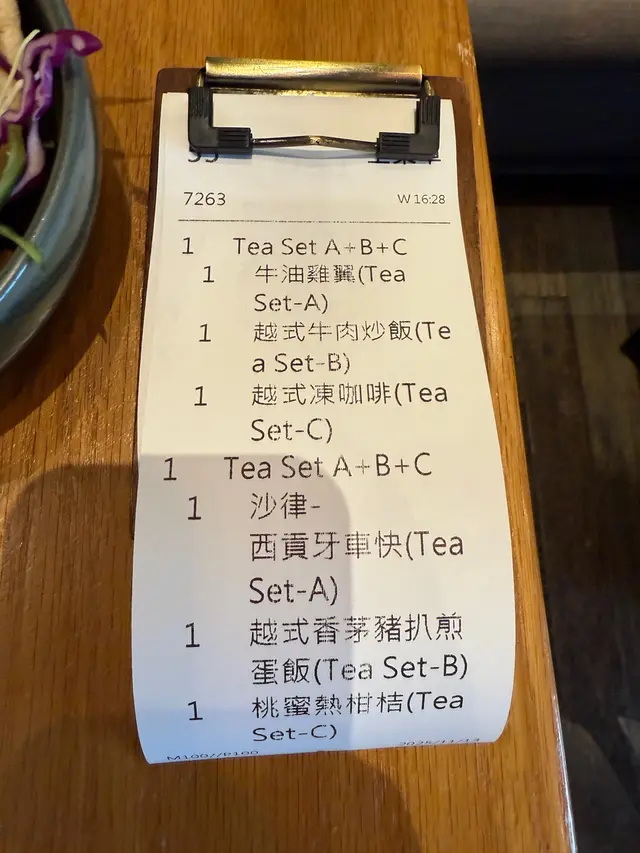 7263 W 16:28
1 Tea Set A+B+C
1 牛油雞翼(Tea
Set-A)
1 越式牛肉炒飯(Te
a Set-B)
1 越式凍咖啡(Tea
Set-C)
1 Tea Set A+B+C
1 沙律-
西貢牙車快(Tea
Set-A)
1 越式香茅豬扒煎
蛋飯(Tea Set-B)
1 桃蜜熱柑桔(Tea
Set-C)
M100//P100